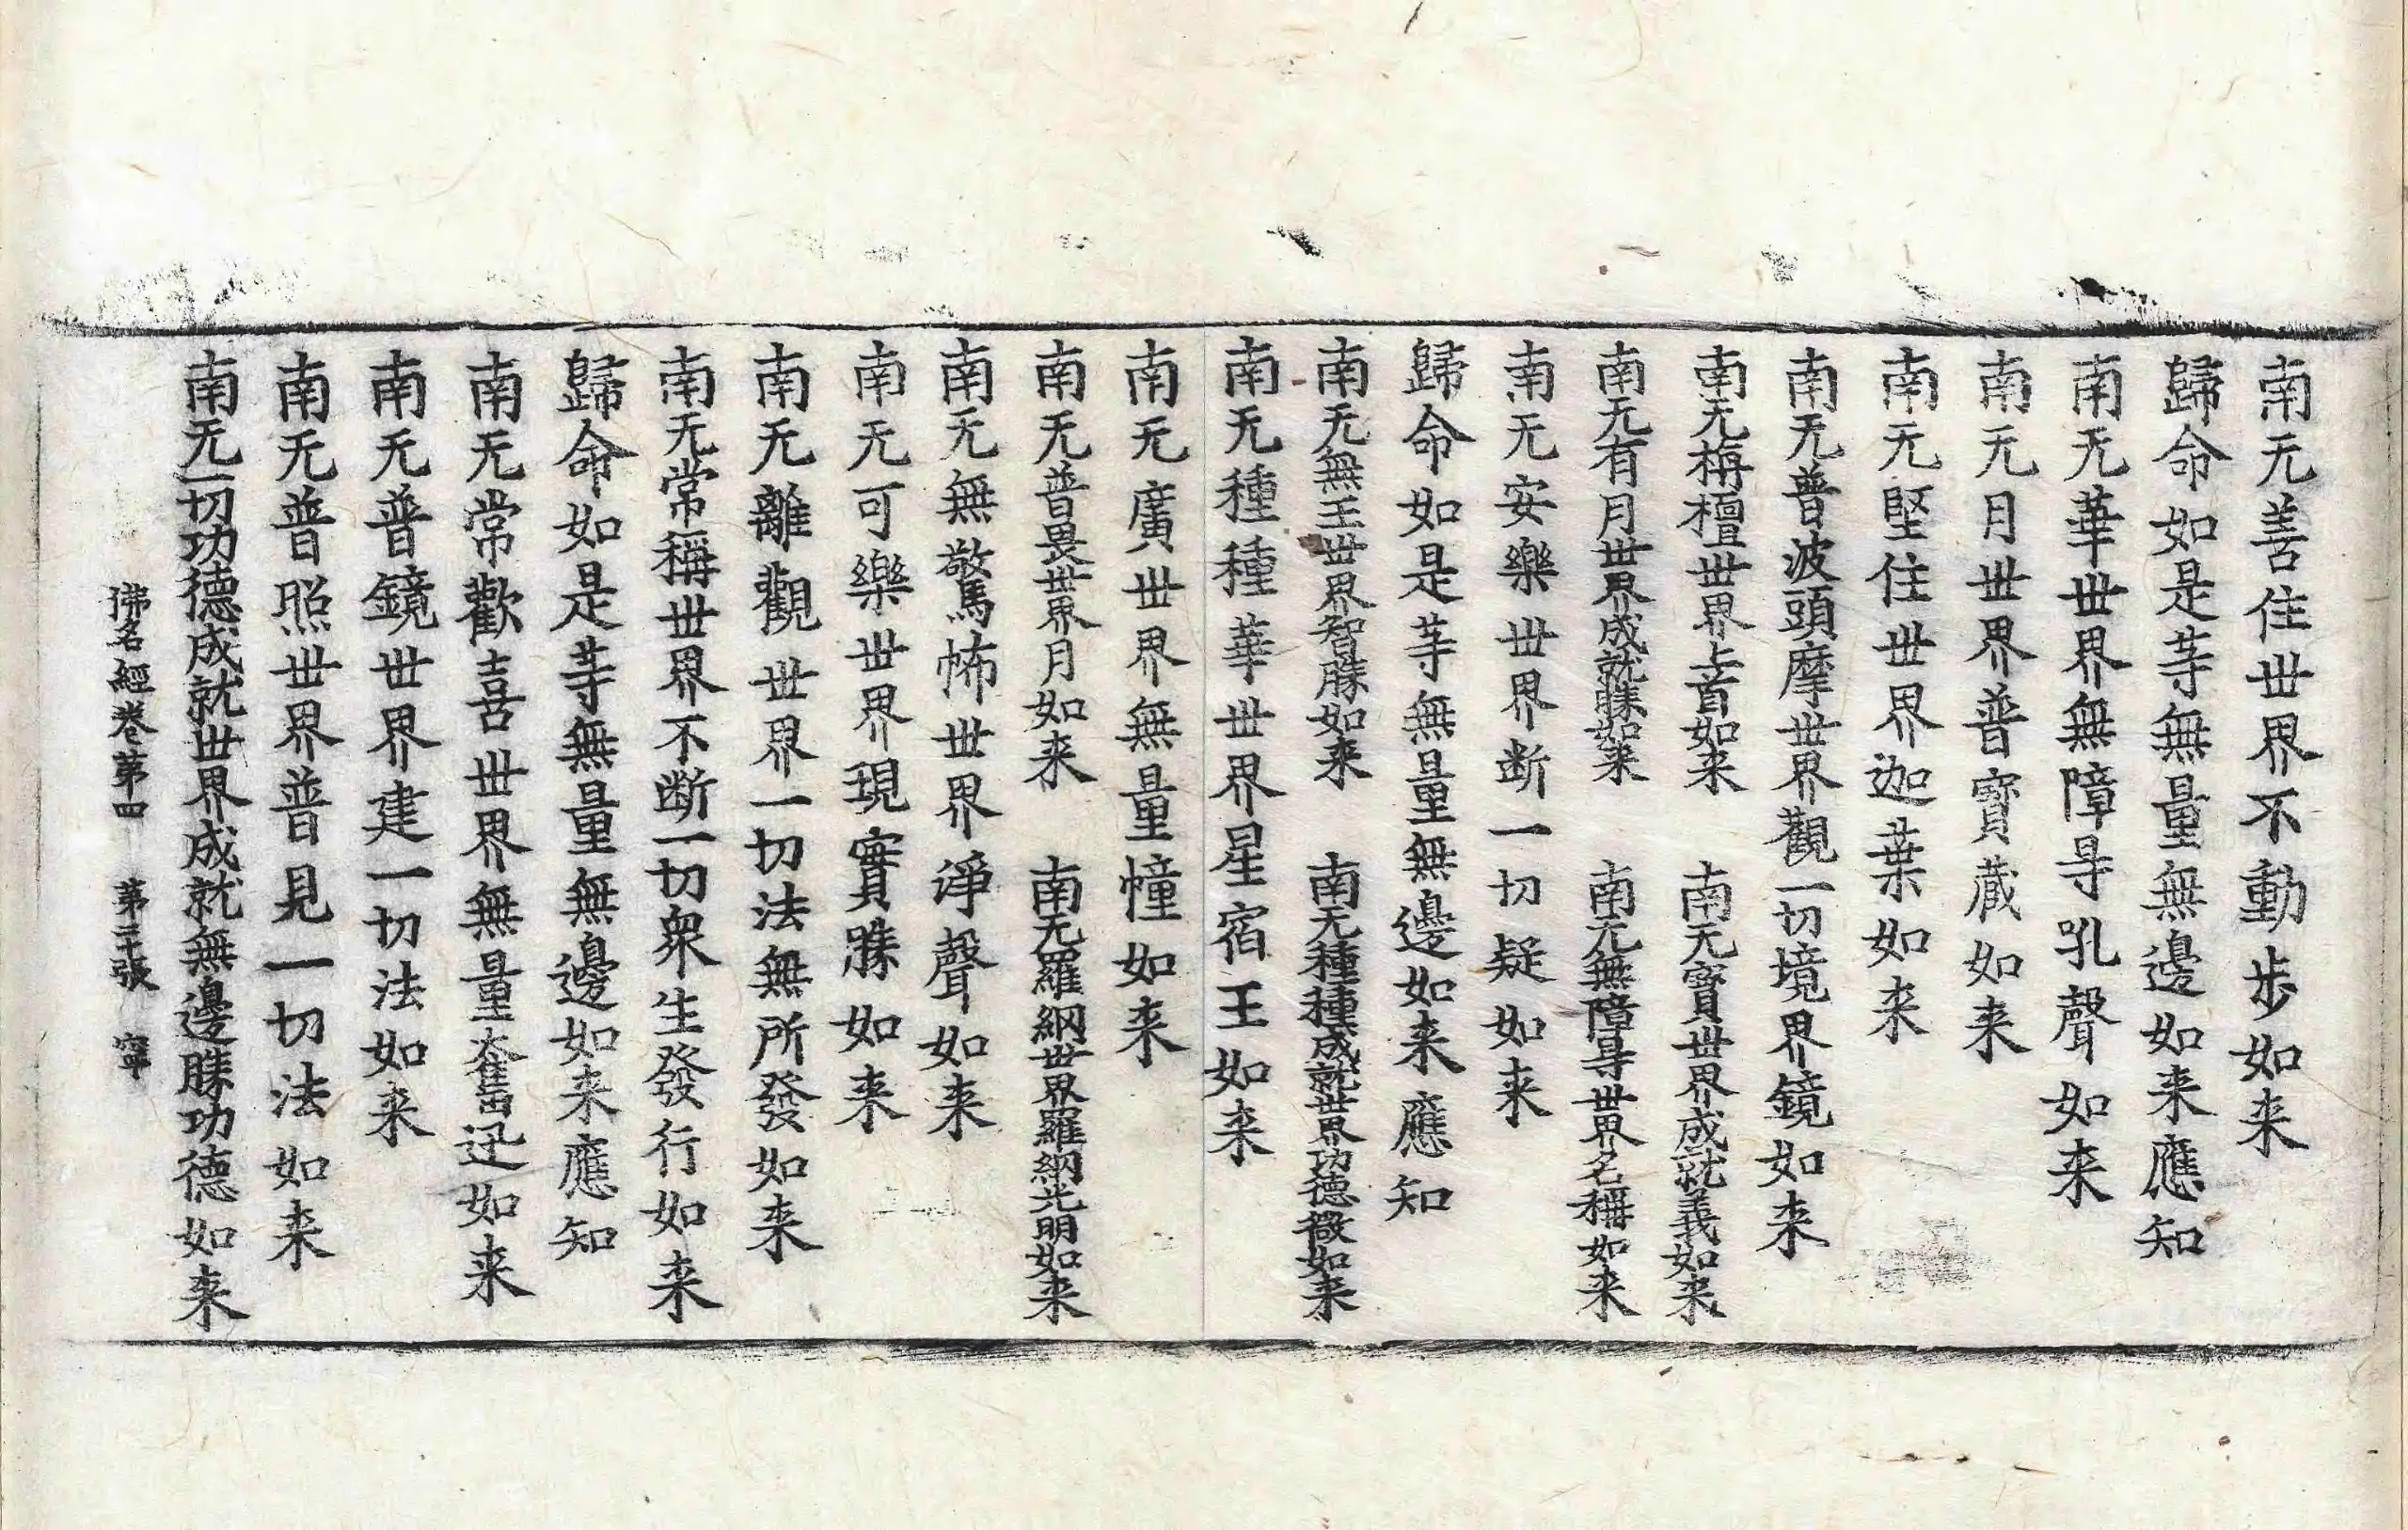 南无善住世界不動步如来
歸命如是䓁無量無邊如来應知
南无華世界無障㝵吼聲如来
南无月世界普寶蔵如来
南无堅住世界迦葉如来
南无普波頭摩世界觀一切境界鏡如来
南无栴檀世界上首如来　南无寶世界成就義如来
南无有月世界成就勝如来　南无無障㝵世界名稱如来
南无安樂世界断一切疑如来
歸命如是䓁無量無邊如来應知
南无無王世界智勝如来　南无種種成就世界功德微如来
南无種種華世界星宿王如来
南无廣世界無量幢如来
南无普畏世界月如来　南无羅網世界羅網光明如来
南无無驚怖世界淨聲如来
南无可樂世界現實勝如来
南无離觀世界一切法無所發如来
南无常稱世界不断一切衆生發行如来
歸命如是䓁無量無邊如来應知
南无常歡喜世界無量奮迅如来
南无普鏡世界建一切法如来
南无普照世界普見一切法如来
南无一切功德成就世界成就無邊勝功德如来
佛名經卷第四　第二十張　寧